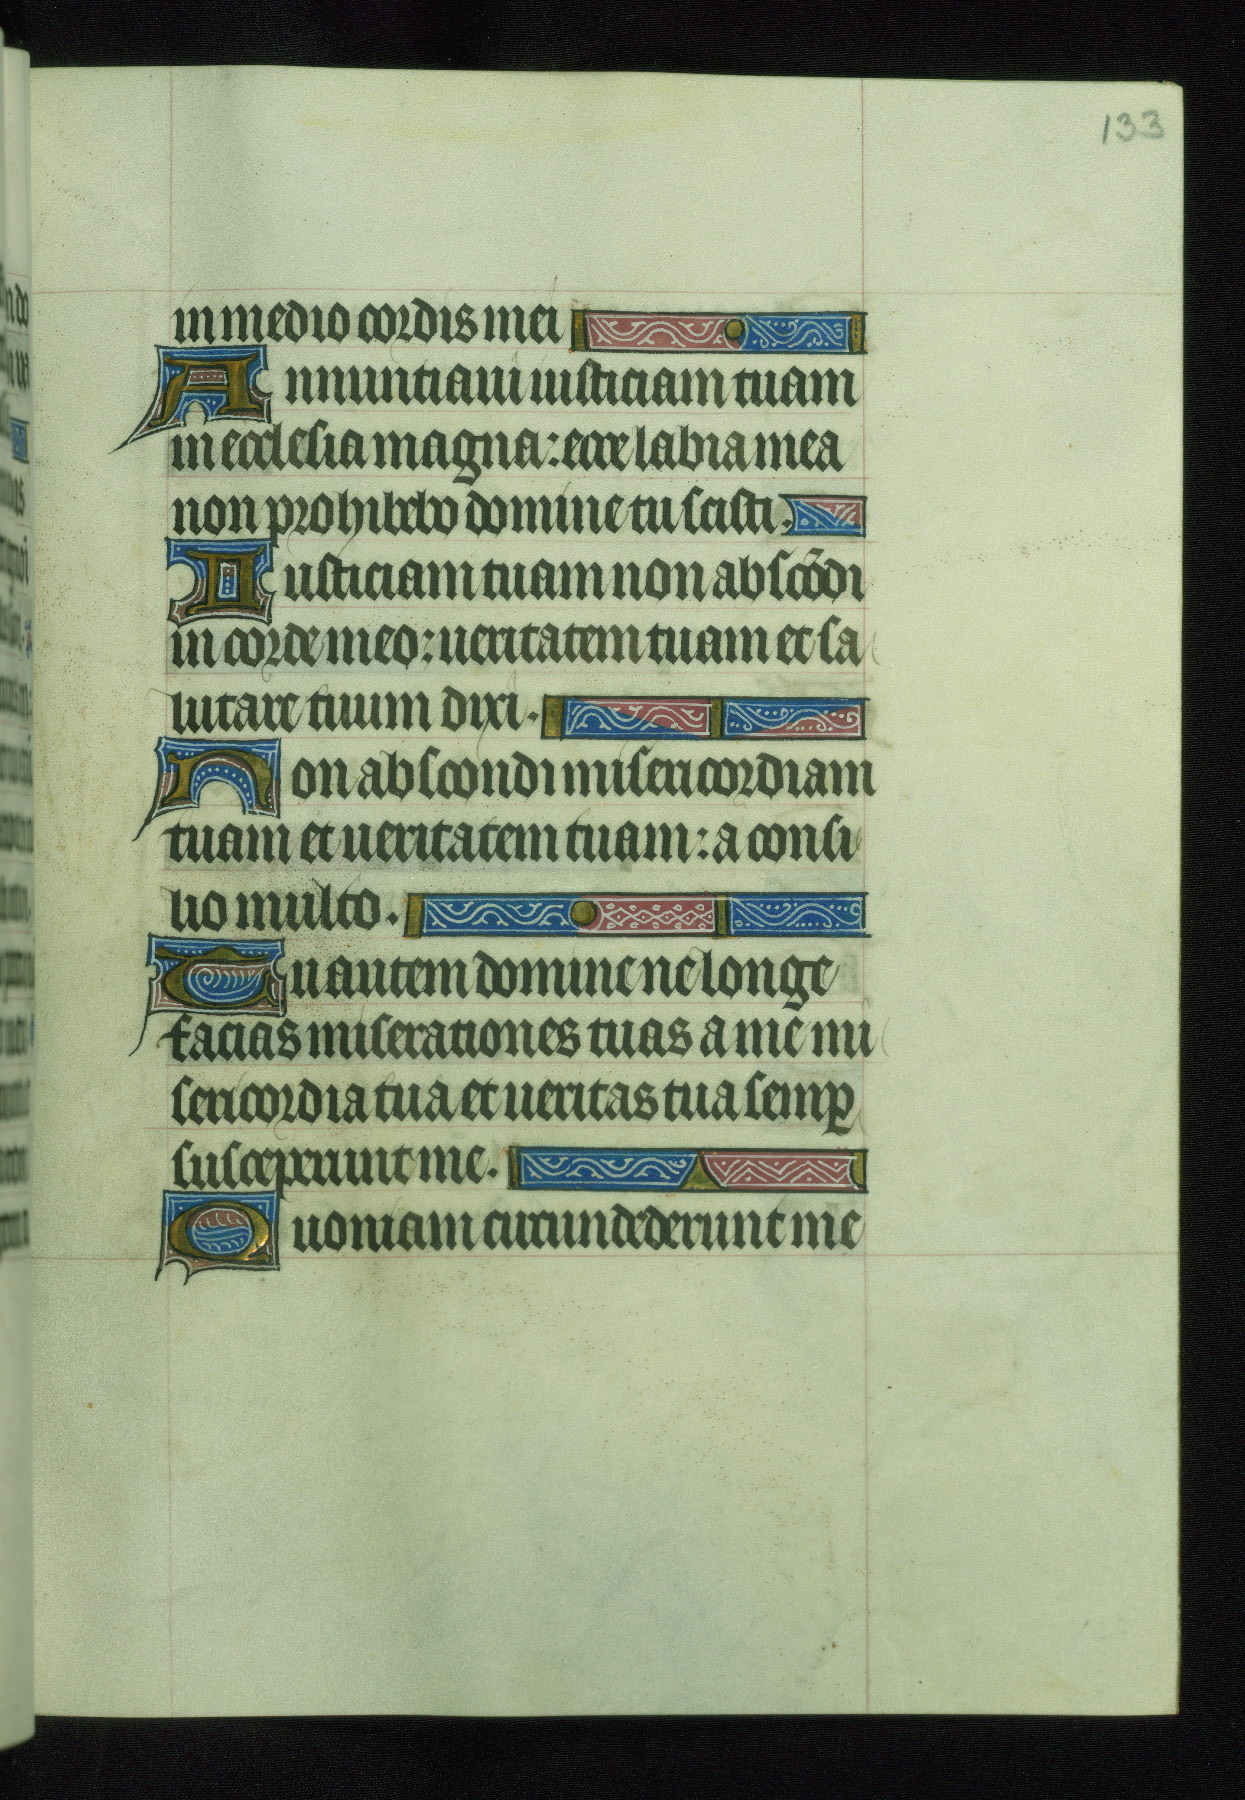 133
in medio cordis mei
Annuntiaui iusticiam tuam
in ecclesia magna: ecce labia mea
non prohibebo domine tu scisti.
Iusticiam tuam non abscōdi
in corde meo: ueritatem tuam et sa
lutare tuum dixi.
Non abscondi misericordiam
tuam et ueritatem tuam: a consi
lio multo.
Tu autem domine ne longe
facias miserationes tuas a me mi
sericordia tua et ueritas tua semꝑ
susceperunt me.
Quoniam circundederunt me